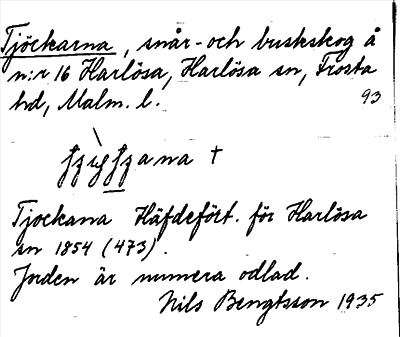 Tjöckarna, snår- och buskskog å
n:r 16 Harlösa, Harlösa sn, Frosta
hd, Malm. l. 93
ana †
Tjockana Häfdeført. för Harlösa
sn 1854 (473).
Jorden är numera odlad.
Nils Bengtsson 1935